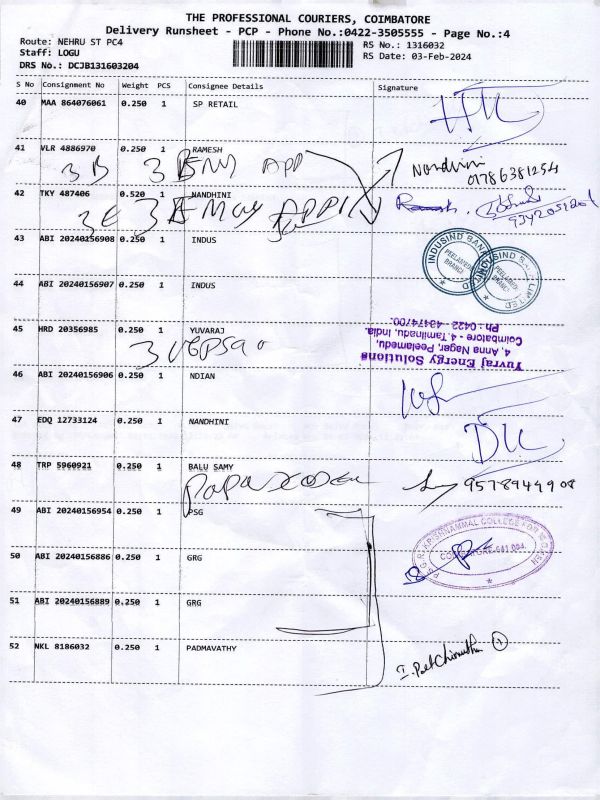 THE PROFESSIONAL COURIERS, COIMBATORE
Delivery Runsheet - PCP - Phone No.:0422-3505555 - Page No.:4
Route: NEHRU ST PC4
Staff: LOGU
DRS No.: DCJB131603204
RS No.: 1316032
RS Date: 03-Feb-2024
S No Consignment No Weight PCS Consignee Details Signature
40 MAA 864076061 0.250 1 SP RETAIL
41 VLR 4886970 0.250 1 RAMESH
3B
Nandhini
01786381254
42 TKY 487406 0.520 1 NANDHINI
3E
43 ABI 20240156908 0.250 1 INDUS
INDUSIND BANK LIMITED
PEELAMEDU
BRANCH
44 ABI 20240156907 0.250 1 INDUS
45 HRD 20356985 0.250 1 YUVARAJ
Yuvraj Energy Solutions
4, Anna Nagar, Peelamedu,
Coimbatore - 4. Tamilnadu, India.
Ph : 0422 - 43474700.
46 ABI 20240156906 0.250 1 NDIAN
47 EDQ 12733124 0.250 1 NANDHINI
48 TRP 5960921 0.250 1 BALU SAMY
9578944908
49 ABI 20240156954 0.250 1 PSG
50 ABI 20240156886 0.250 1 GRG
P.S.G.R. KRISHNAMMAL COLLEGE FOR WOMEN
COIMBATORE-641 004
51 ABI 20240156889 0.250 1 GRG
52 NKL 8186032 0.250 1 PADMAVATHY